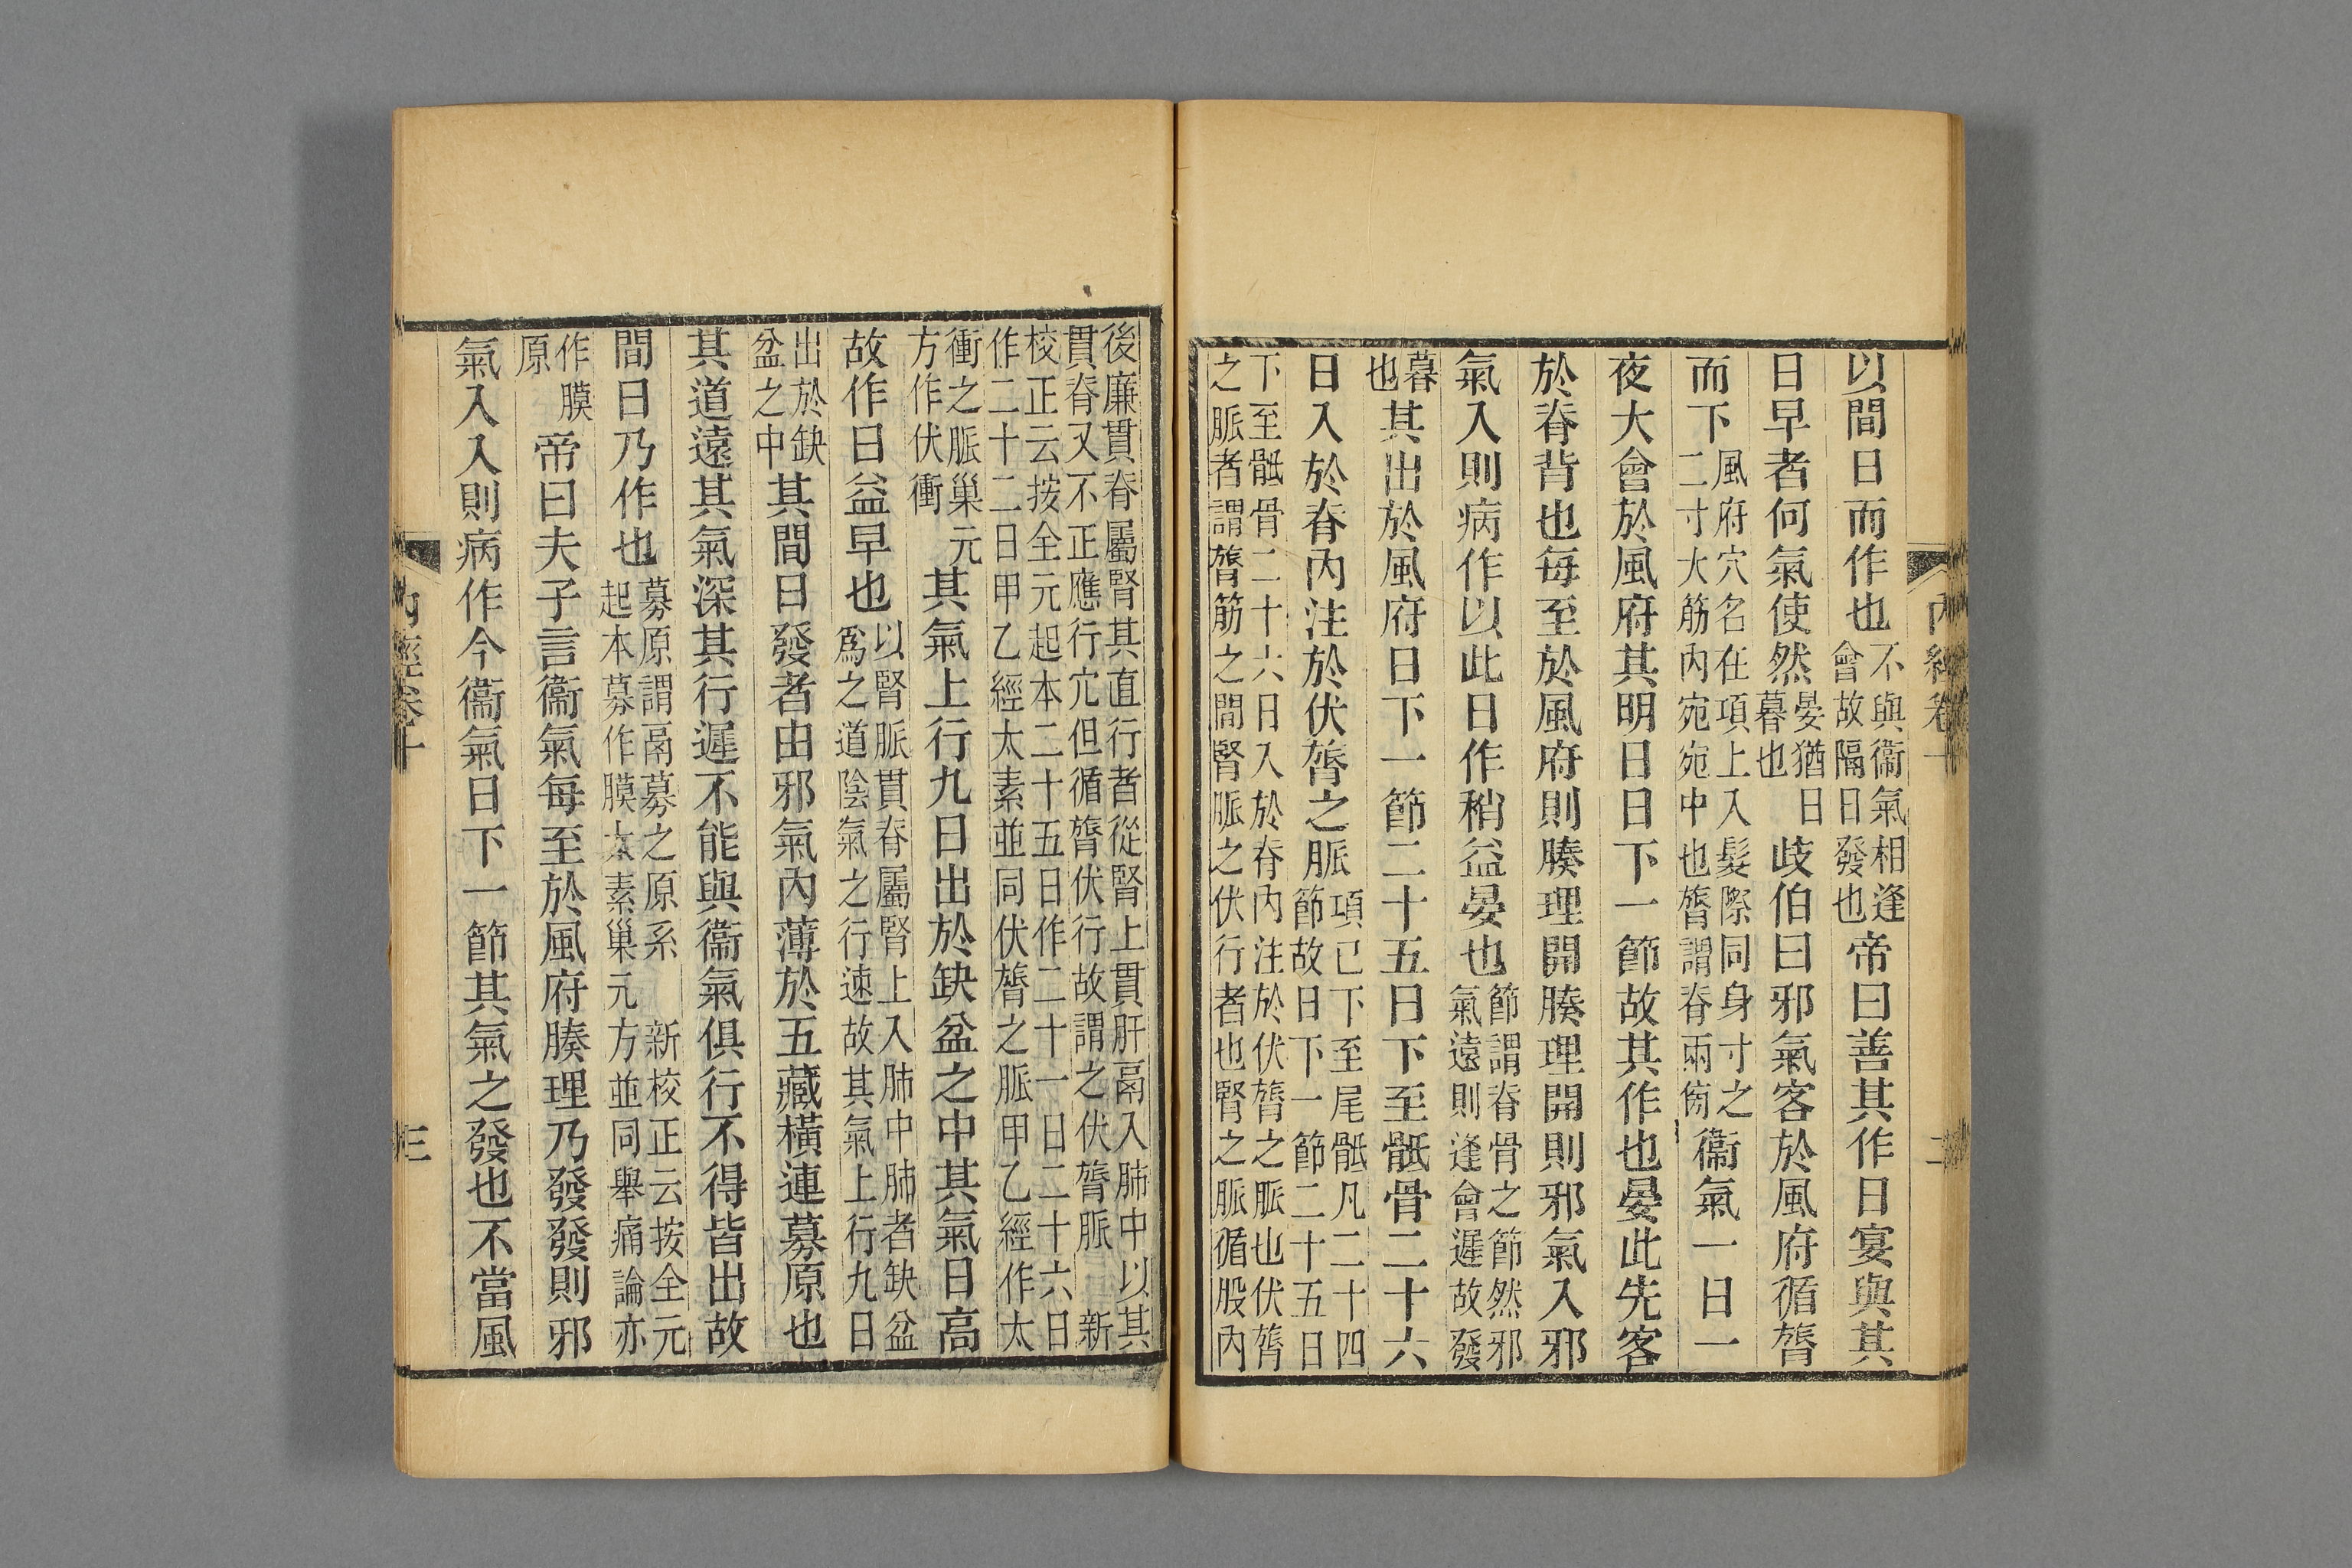 內經卷十
二
以間日而作也不與衞氣相逢會故隔日發也帝曰善其作日宴與其
日早者何氣使然晏猶日暮也歧伯曰邪氣客於風府循膂
而下風府穴名在項上入髮際同身寸之二寸大筋內宛宛中也膂謂脊兩傍衞氣一日一
夜大會於風府其明日日下一節故其作也晏此先客
於脊背也每至於風府則腠理開腠理開則邪氣入邪
氣入則病作以此日作稍益晏也節謂脊骨之節然邪氣遠則逢會遲故發
暮也其出於風府日下一節二十五日下至骶骨二十六
日入於脊內注於伏膂之脈項已下至尾骶凡二十四節故日下一節二十五日
下至骶骨二十六日入於脊內注於伏膂之脈也伏膂
之脈者謂膂筋之間腎脈之伏行者也腎之脈循股內
後廉貫脊屬腎其直行者從腎上貫肝鬲入肺中以其
貫脊又不正應行穴但循膂伏行故謂之伏膂脈 新
校正云按全元起本二十五日作二十一日二十六日
作二十二日甲乙經太素並同伏膂之脈甲乙經作太
衝之脈巢元方作伏衝其氣上行九日出於缺盆之中其氣日高
故作日益早也以腎脈貫脊屬腎上入肺中肺者缺盆爲之道陰氣之行速故其氣上行九日
出於缺盆之中其間日發者由邪氣內薄於五藏橫連募原也
其道遠其氣深其行遲不能與衞氣俱行不得皆出故
間日乃作也募原謂鬲募之原系 新校正云按全元起本募作膜太素巢元方並同舉痛論亦
作膜原帝曰夫子言衞氣每至於風府腠理乃發發則邪
氣入入則病作今衞氣日下一節其氣之發也不當風
內經卷十
三